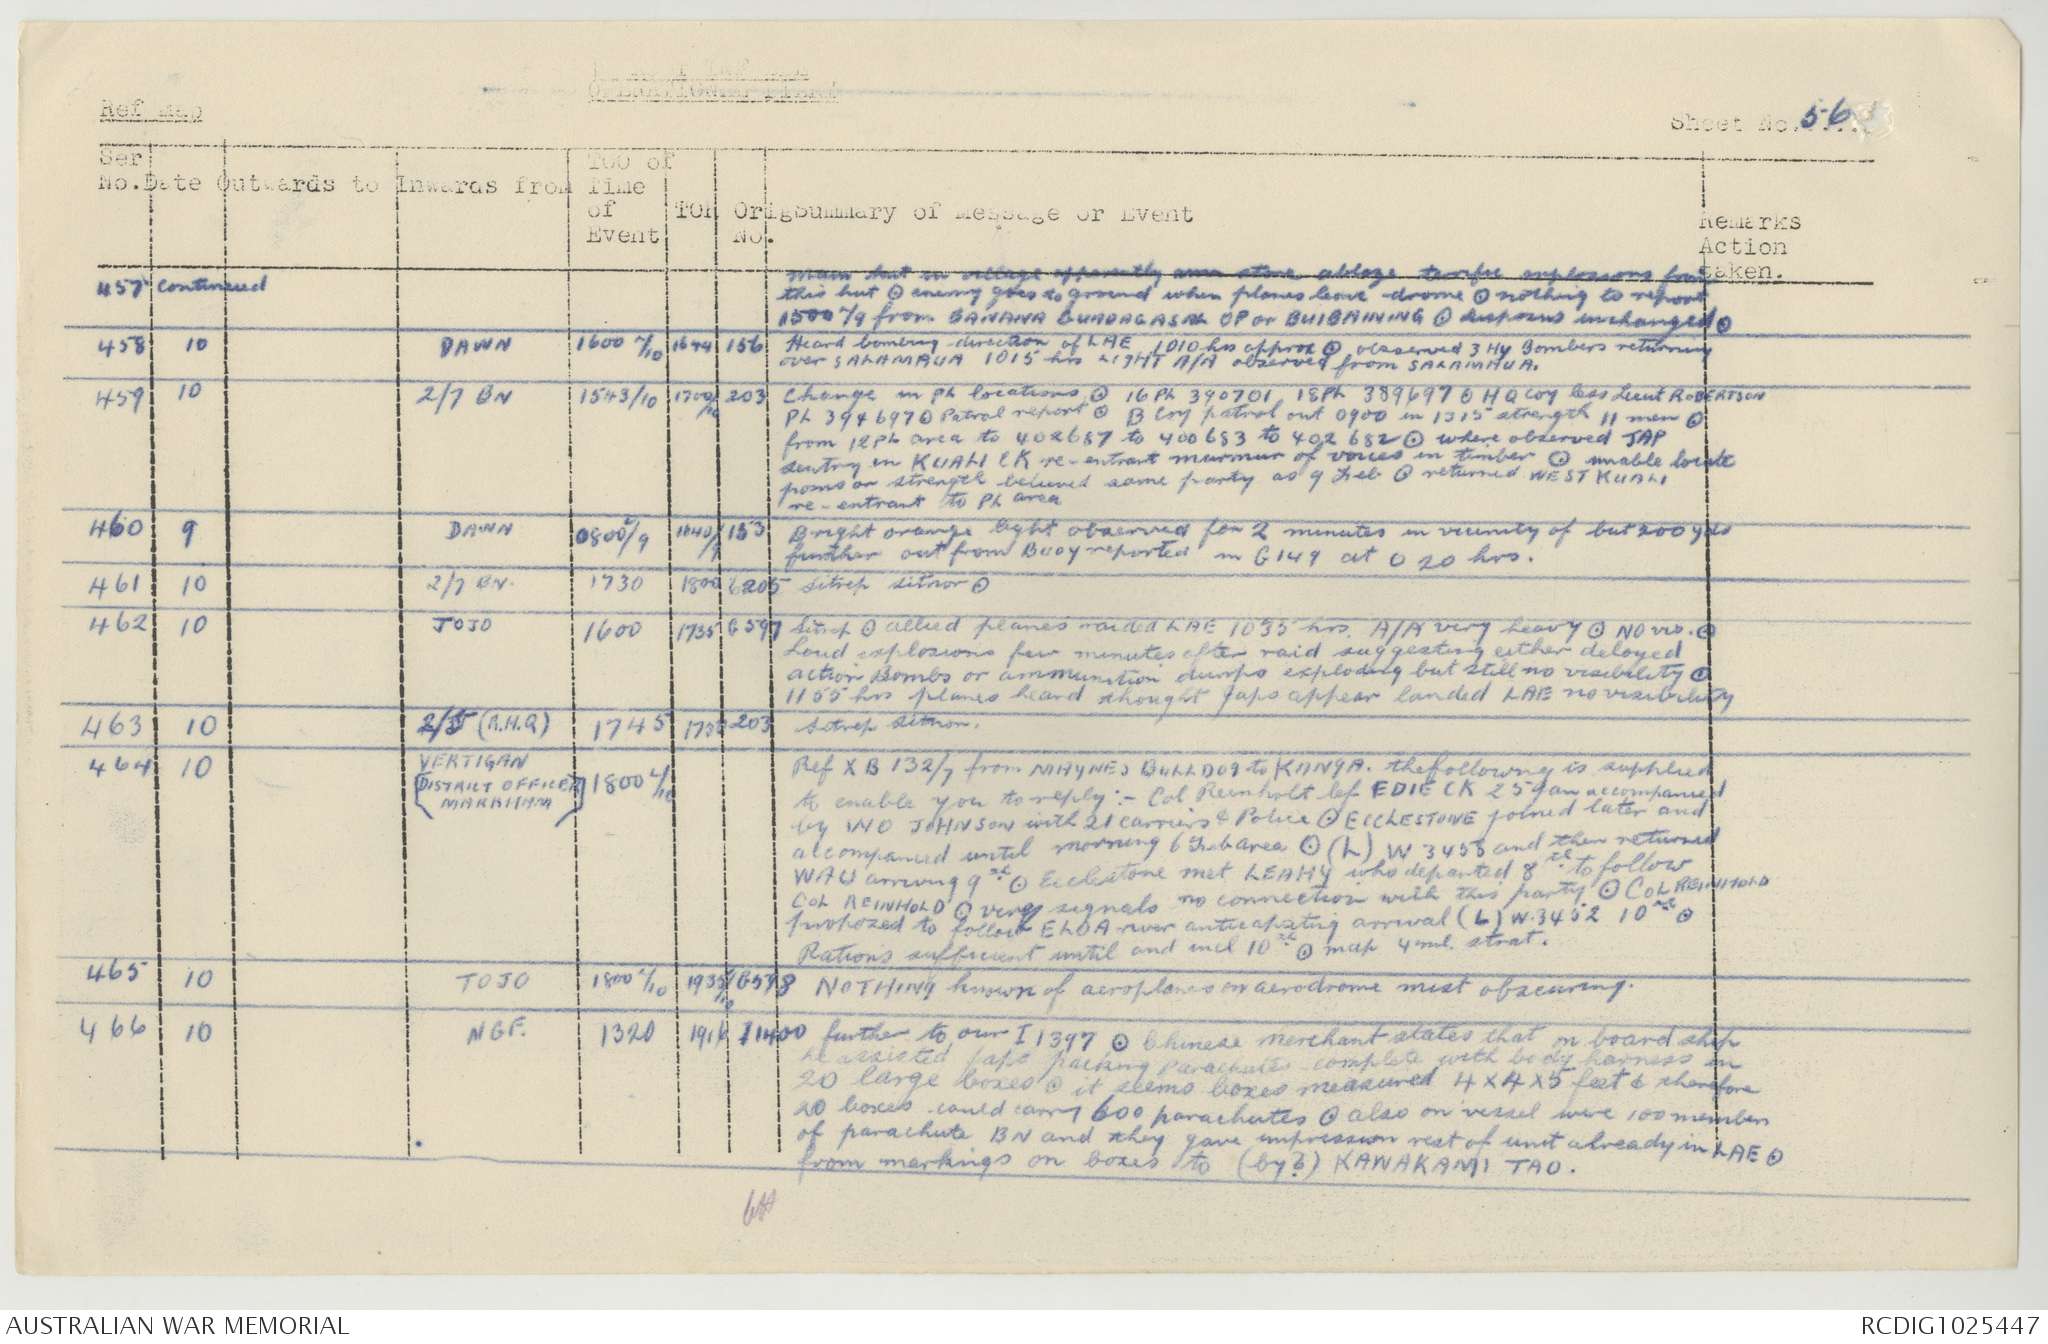 OPERATIONAL DIARY
Ref Map
Sheet No. 56
Ser No. Date Outwards to Inwards from TOO of Time of Event TOR Orig No. Summary of Message or Event Remarks Action taken.
457 continued main hut in village apparently store ablaze terrific explosions from
this hut ⊙ enemy goes to ground when planes leave drome ⊙ nothing to report
1500 L/9 from BANANA GUADAGASAL OP or BUIBAINING ⊙ disposns unchanged ⊙
458 10 DAWN 1600 L/10 1644 156 Heard bombing direction of LAE 1010 hrs approx ⊙ observed 3 Hy Bombers returning
over SALAMAUA 1015 hrs LIGHT A/A observed from SALAMAUA.
459 10 2/7 BN 1543/10 1700/10 203 Change in PL locations ⊙ 16 PL 390701 18 PL 389697 ⊙ HQ Coy less Lieut ROBERTSON
PL 394697 ⊙ Patrol report ⊙ B Coy patrol out 0900 in 1315 strength 11 men ⊙
from 12 PL area to 402687 to 400683 to 402682 ⊙ where observed JAP
sentry in KUALI CK re-entrant murmur of voices in timber ⊙ unable locate
posns or strength believed same party as 9 Feb ⊙ returned WEST KUALI
re-entrant to PL area
460 9 DAWN 0800L/9 1040/9 153 Bright orange light observed for 2 minutes in vicinity of but 200 yds
further out from Buoy reported in G149 at 020 hrs.
461 10 2/7 BN. 1730 1800 G205 Sitrep sitnor ⊙
462 10 JOJO 1600 1735 G597 Sitrep ⊙ allied planes raided LAE 1035 hrs. A/A very heavy ⊙ NO vis. ⊙
Loud explosions few minutes after raid suggesting either delayed
action Bombs or ammunition dumps exploding but still no visibility ⊙
1155 hrs planes heard thought Japs appear landed LAE no visibility
463 10 2/5 (R.H.Q) 1745 1755 203 Sitrep sitnor.
464 10 VERTIGAN (DISTRICT OFFICER MARKHAM) 1800 L/10 Ref XB 132/7 from MAYNES BULLDOG to KANGA. the following is supplied
to enable you to reply :- Col Reinholt lef EDIE CK 2 59 am accompanied
by WO JOHNSON with 21 carriers & Police ⊙ ECCLESTONE joined later and
accompanied until morning 6 Feb area ⊙ (L) W 3455 and then returned
WAU arriving 9th ⊙ Ecclestone met LEAHY who departed 8th to follow
COL REINHOLD ⊙ very signals no connection with this party ⊙ COL REINHOLD
proposed to follow ELOA river anticapating arrival (L) W.3452 10th ⊙
Rations sufficient until and incl 10th ⊙ map 4 ml. strat.
465 10 JOJO 1800 L/10 1935/10 G598 NOTHING known of aeroplanes on aerodrome mist obscuring.
466 10 NGF. 1320 1916 I1400 further to our I 1397 ⊙ Chinese merchant states that on board ship
he assisted Japs packing Parachutes complete with body harness in
20 large boxes ⊙ it seems boxes measured 4 x 4 x 5 feet & therefore
20 boxes could carry 600 parachutes ⊙ also on vessel were 100 members
of parachute BN and they gave impression rest of unit already in LAE ⊙
from markings on boxes to (by?) KAWAKAMI TAO.
AUSTRALIAN WAR MEMORIAL
RCDIG1025447